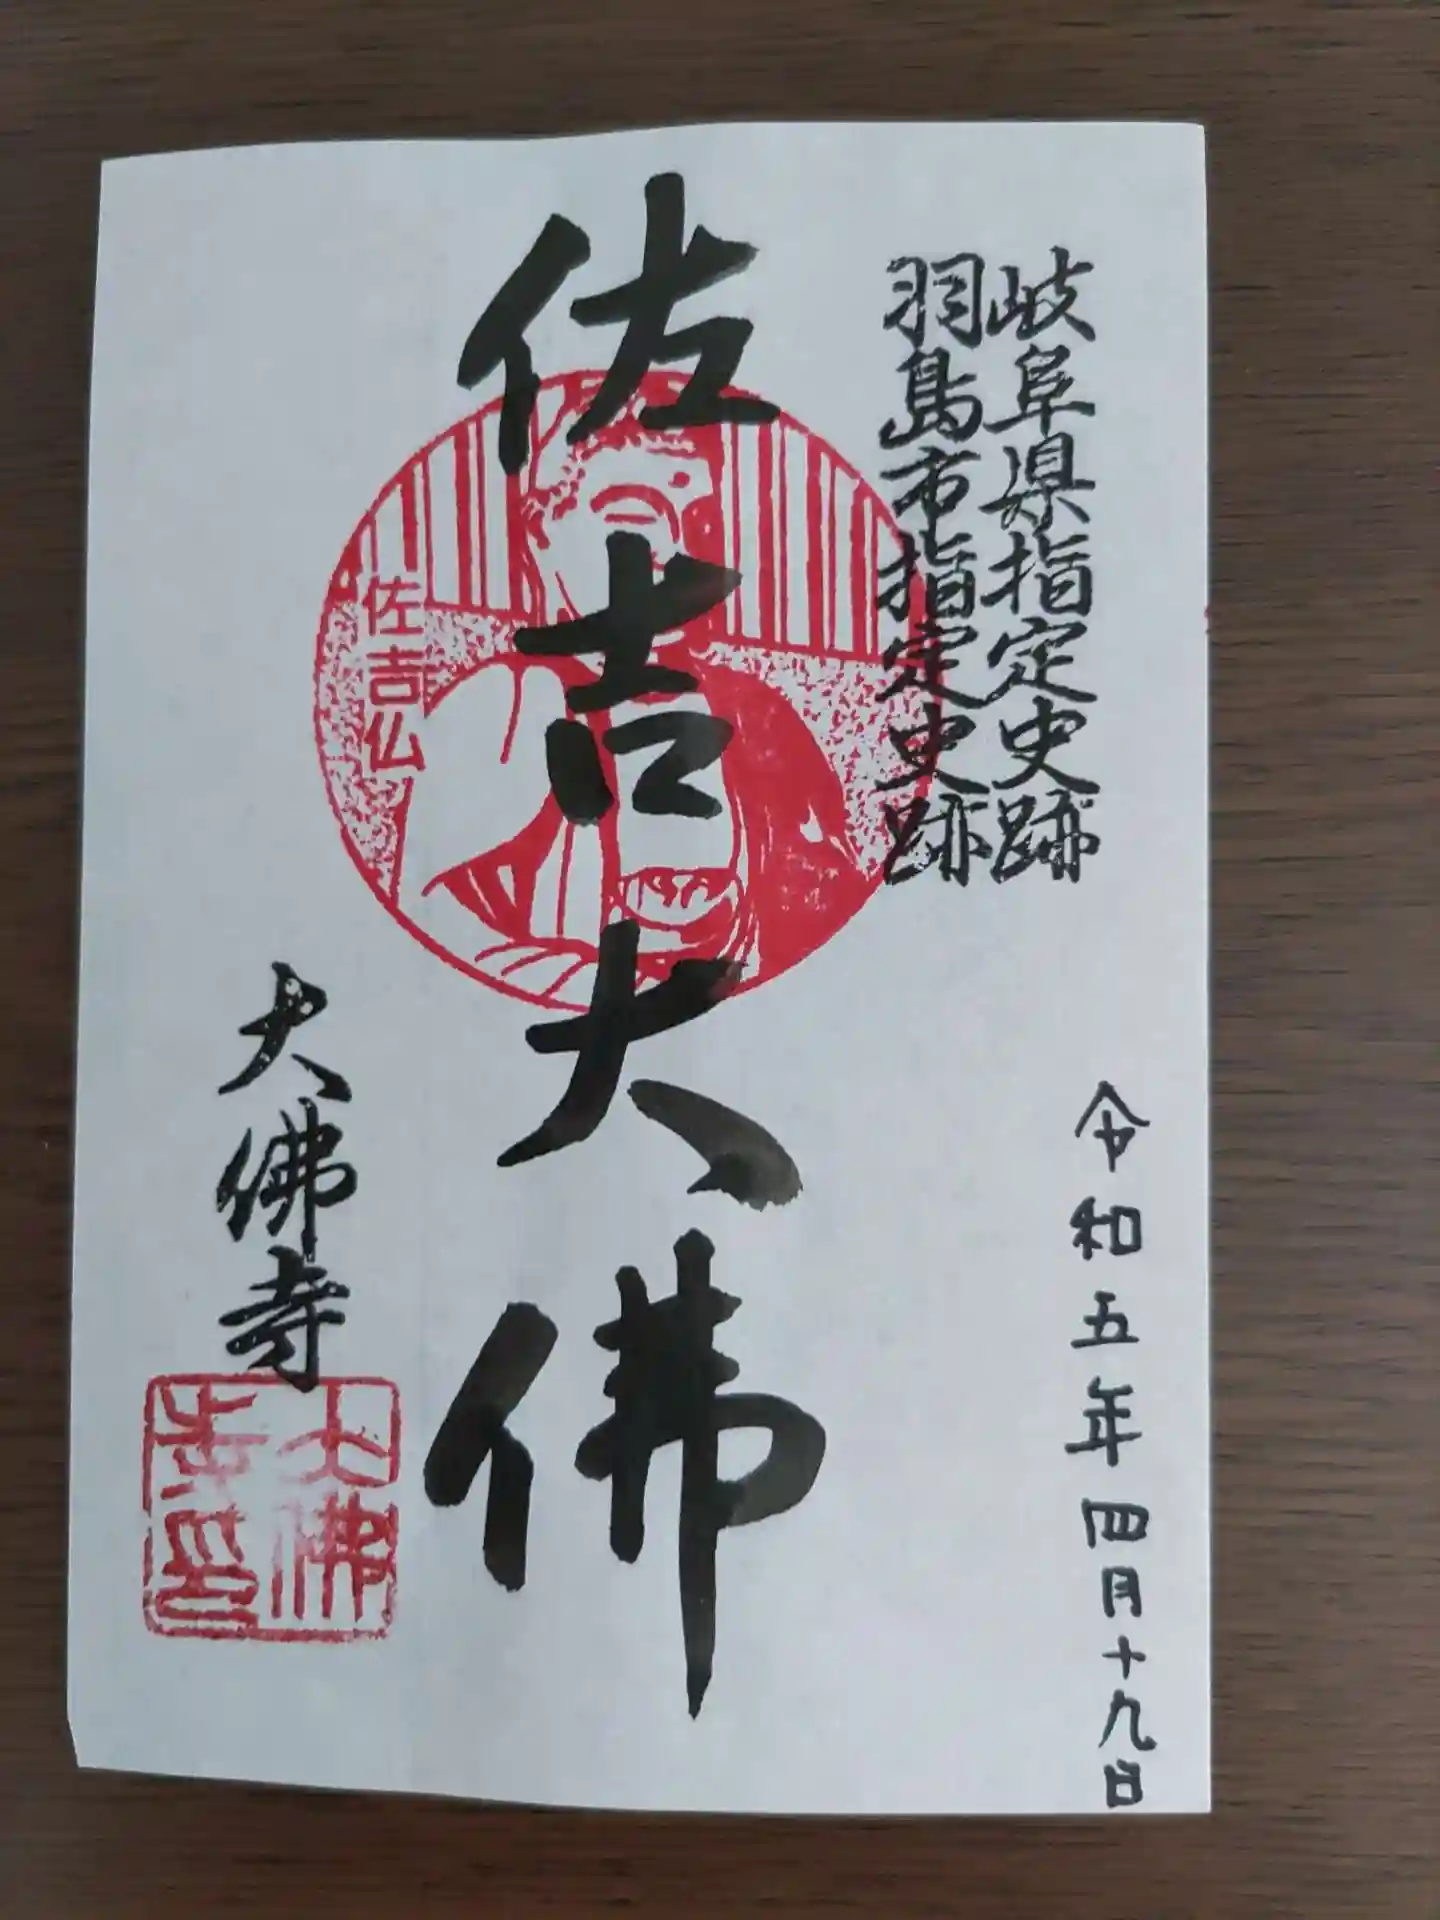 岐阜県指定史跡
羽島市指定史跡
令和五年四月十九日
佐吉大佛
佐吉仏
大佛寺
大佛
寺印